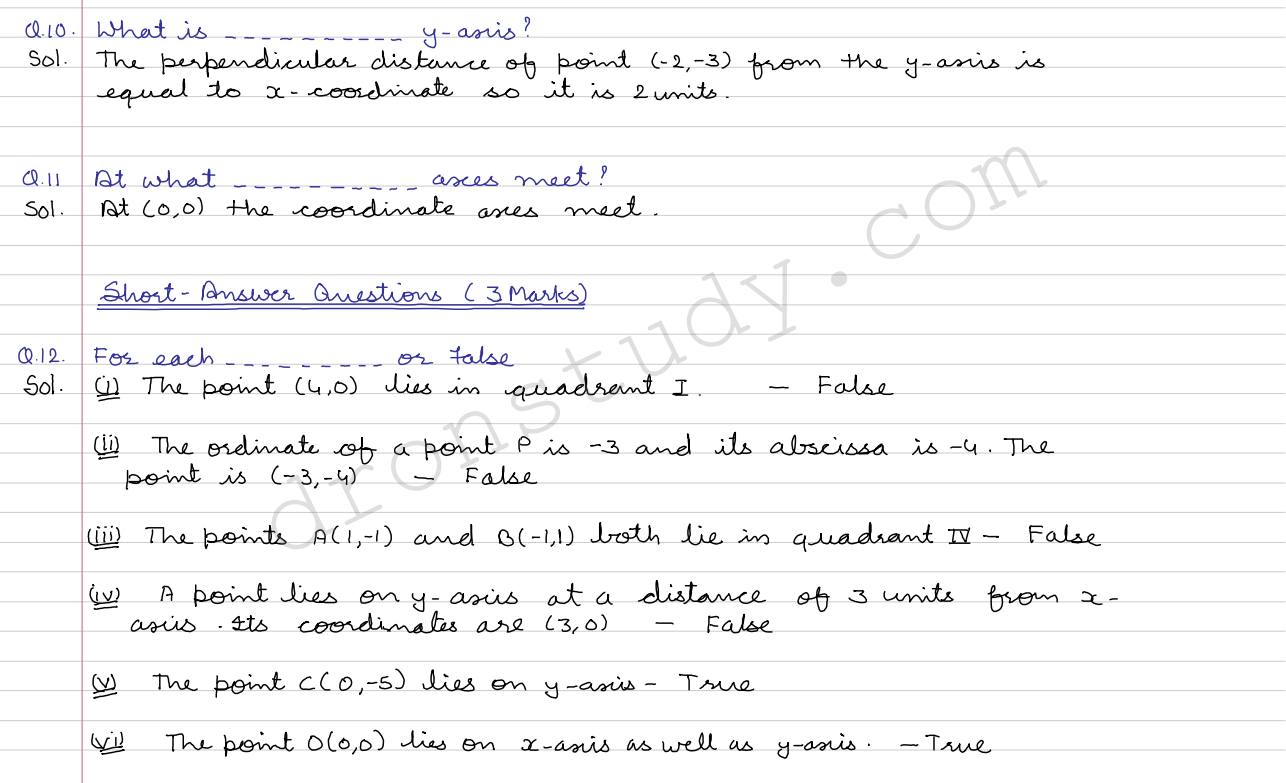 Q.10. What is ---------- y-axis?
Sol. The perpendicular distance of point (-2,-3) from the y-axis is
equal to x-coordinate so it is 2 units.
Q.11 At what ---------- axes meet?
Sol. At (0,0) the coordinate axes meet.
Short-Answer Questions (3 Marks)
Q.12. For each --------- or false
Sol. (i) The point (4,0) lies in quadrant I. — False
(ii) The ordinate of a point P is -3 and its abscissa is -4. The
point is (-3,-4) — False
(iii) The points A(1,-1) and B(-1,1) both lie in quadrant IV — False
(iv) A point lies on y-axis at a distance of 3 units from x-
axis. Its coordinates are (3,0) — False
(v) The point C(0,-5) lies on y-axis - True
(vi) The point O(0,0) lies on x-axis as well as y-axis. — True
dronstudy.com